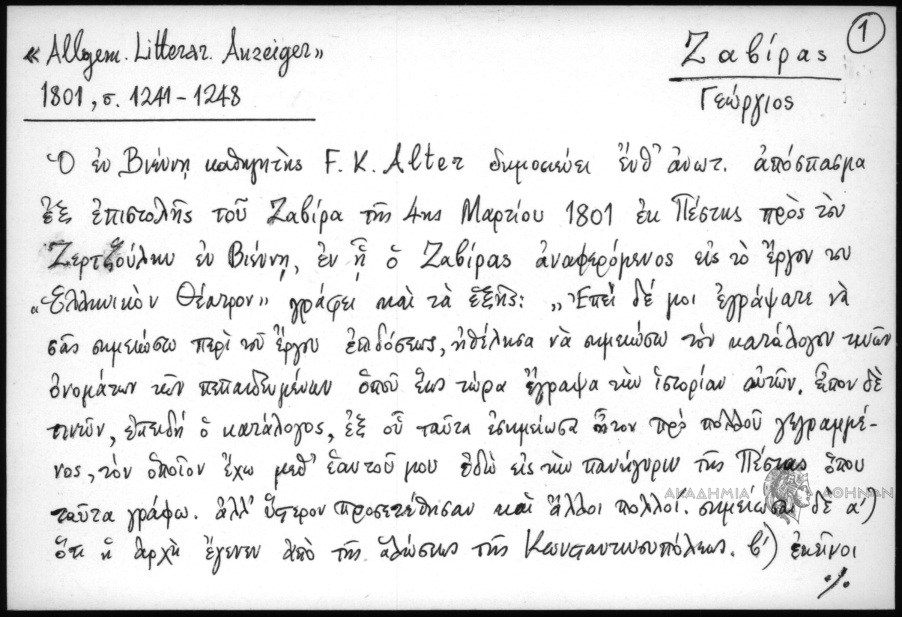 ①
«Allgem. Litterar. Anzeiger»
1801, σ. 1241-1248
Ζαβίρας
Γεώργιος
Ὁ ἐν Βιέννῃ καθηγητὴς F. K. Alter δημοσιεύει ἔνθ' ἀνωτ. ἀπόσπασμα
ἐξ ἐπιστολῆς τοῦ Ζαβίρα τῆς 4ης Μαρτίου 1801 ἐκ Πέστης πρὸς τὸν
Ζερτζούλην ἐν Βιέννῃ, ἐν ᾗ ὁ Ζαβίρας ἀναφερόμενος εἰς τὸ ἔργον του
«Ἑλληνικὸν Θέατρον» γράφει καὶ τὰ ἑξῆς: „Ἐπεὶ δέ μοι ἐγράψατε νὰ
σᾶς σημειώσω περὶ τοῦ ἔργου ἐπιδόσεως, ἠθέλησα νὰ σημειώσω τὸν κατάλογον τινῶν
ὀνομάτων τῶν πεπαιδευμένων ὁποῦ ἕως τώρα ἔγραψα τὴν ἱστορίαν αὐτῶν. Εἶπον δὲ
τινῶν, ἐπειδὴ ὁ κατάλογος, ἐξ οὗ ταῦτα ἐσημείωσα ἦτον πρὸ πολλοῦ γεγραμμέ-
νος, τὸν ὁποῖον ἔχω μεθ' ἑαυτοῦ μου ἐδῶ εἰς τὴν πανήγυριν τῆς Πέστας ὅπου
ταῦτα γράφω. ἀλλ' ὕστερον προσετέθησαν καὶ ἄλλοι πολλοί. σημείωσαι δὲ α')
ὅτι ἡ ἀρχὴ ἔγεινεν ἀπὸ τῆς ἁλώσεως τῆς Κωνσταντινουπόλεως. β') ἐκεῖνοι
./.
ΑΚΑΔΗΜΙΑ ΑΘΗΝΩΝ